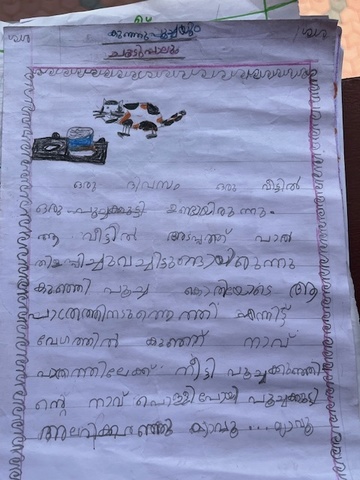 കുഞ്ഞുപൂച്ചയും
ചൂടുപാലും
ഒരു ദിവസം ഒരു വീട്ടിൽ
ഒരു പൂച്ചക്കുട്ടി ഉണ്ടായിരുന്നു.
ആ വീട്ടിൽ അടുപ്പത്ത് പാൽ
തിളപ്പിച്ചുവച്ചിട്ടുണ്ടായിരുന്നു
കുഞ്ഞി പൂച്ച കൊതിയോടെ ആ
പാത്രത്തിനടുത്തെത്തി എന്നിട്ട്
വേഗത്തിൽ കുഞ്ഞ് നാവ്
പാത്രത്തിലേക്ക് നീട്ടി പൂച്ചക്കുഞ്ഞി
ന്റെ നാവ് പൊള്ളിപോയി പൂച്ചക്കുട്ടി
അലറിക്കരഞ്ഞു മ്യാവൂ... മ്യാവൂ